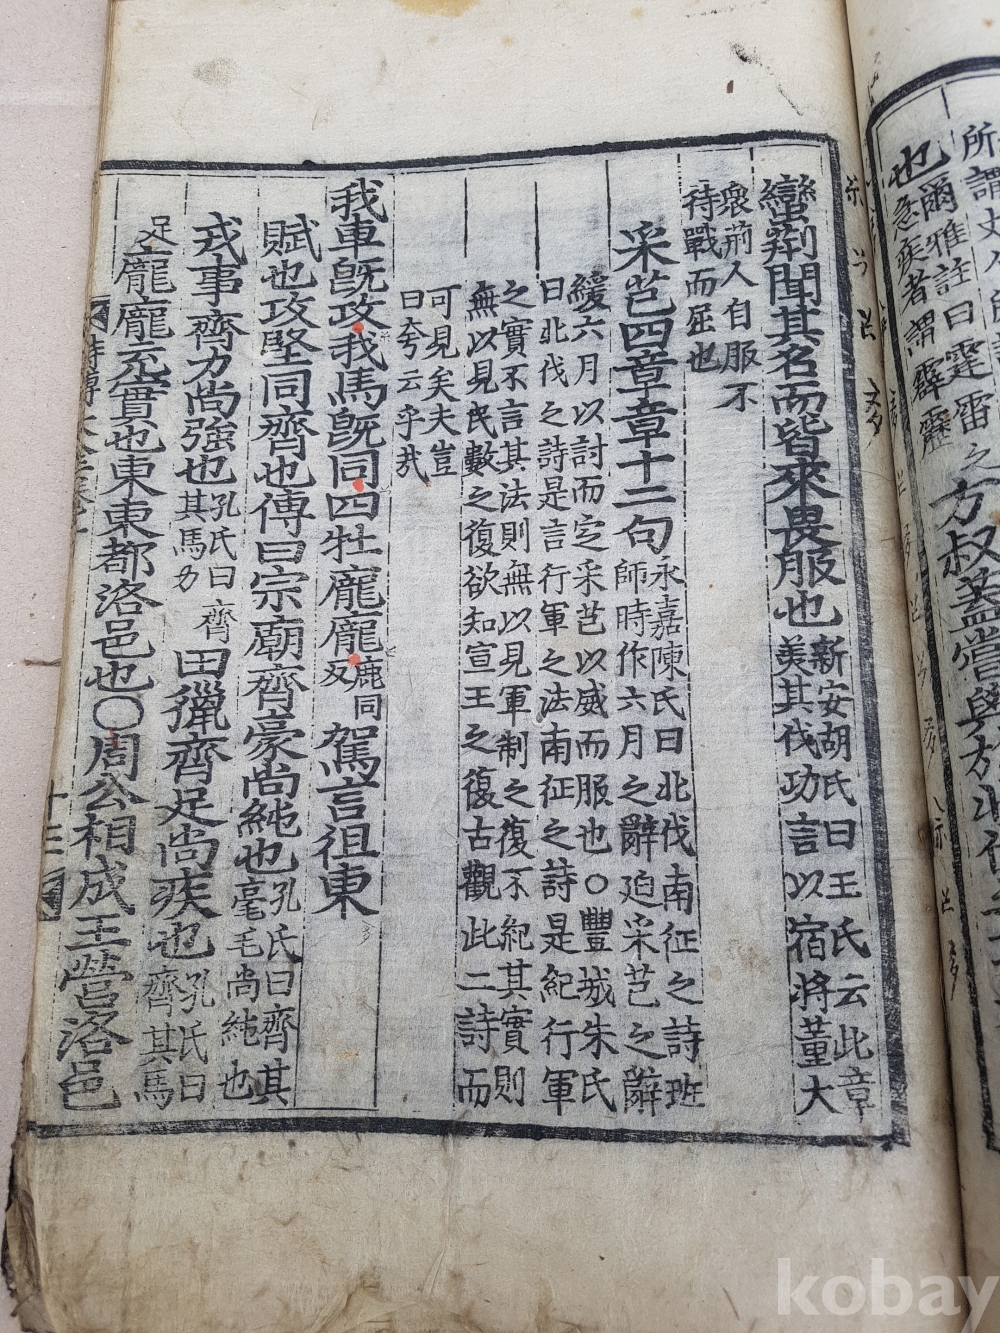 也爾雅註曰霆雷之
急疾者謂霹靂
方叔蓋嘗與於北伐
蠻荊聞其名而皆來畏服也新安胡氏曰王氏云此章
美其伐功言以宿將董大
衆荊人自服不
待戰而屈也
采芑四章章十二句永嘉陳氏曰北伐南征之詩班
師時作六月之辭迫采芑之辭
緩六月以討而定采芑以威而服也○豐城朱氏
曰北伐之詩是言行軍之法南征之詩是紀行軍
之實不言其法則無以見軍制之復不紀其實則
無以見民數之復欲知宣王之復古觀此二詩而
可見矣夫豈
曰夸云乎哉
我車旣攻我馬旣同四牡龐龐鹿同反駕言徂東
賦也攻堅同齊也傳曰宗廟齊豪尚純也孔氏曰齊其
毫毛尚純也
戎事齊力尚強也孔氏曰齊其馬力田獵齊足尚疾也孔氏曰
齊其馬
足龐龐充實也東東都洛邑也○周公相成王營洛邑
十三
kobay